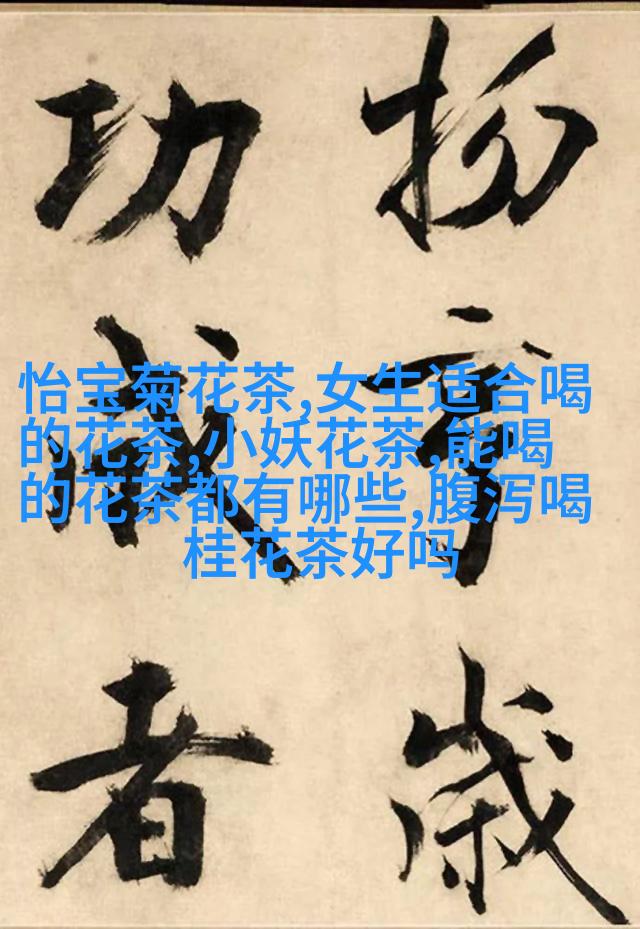 歲
功
成
者
怡宝菊花茶,女生适合喝
的花茶,小妖花茶,能喝
的花茶都有哪些,腹泻喝
桂花茶好吗